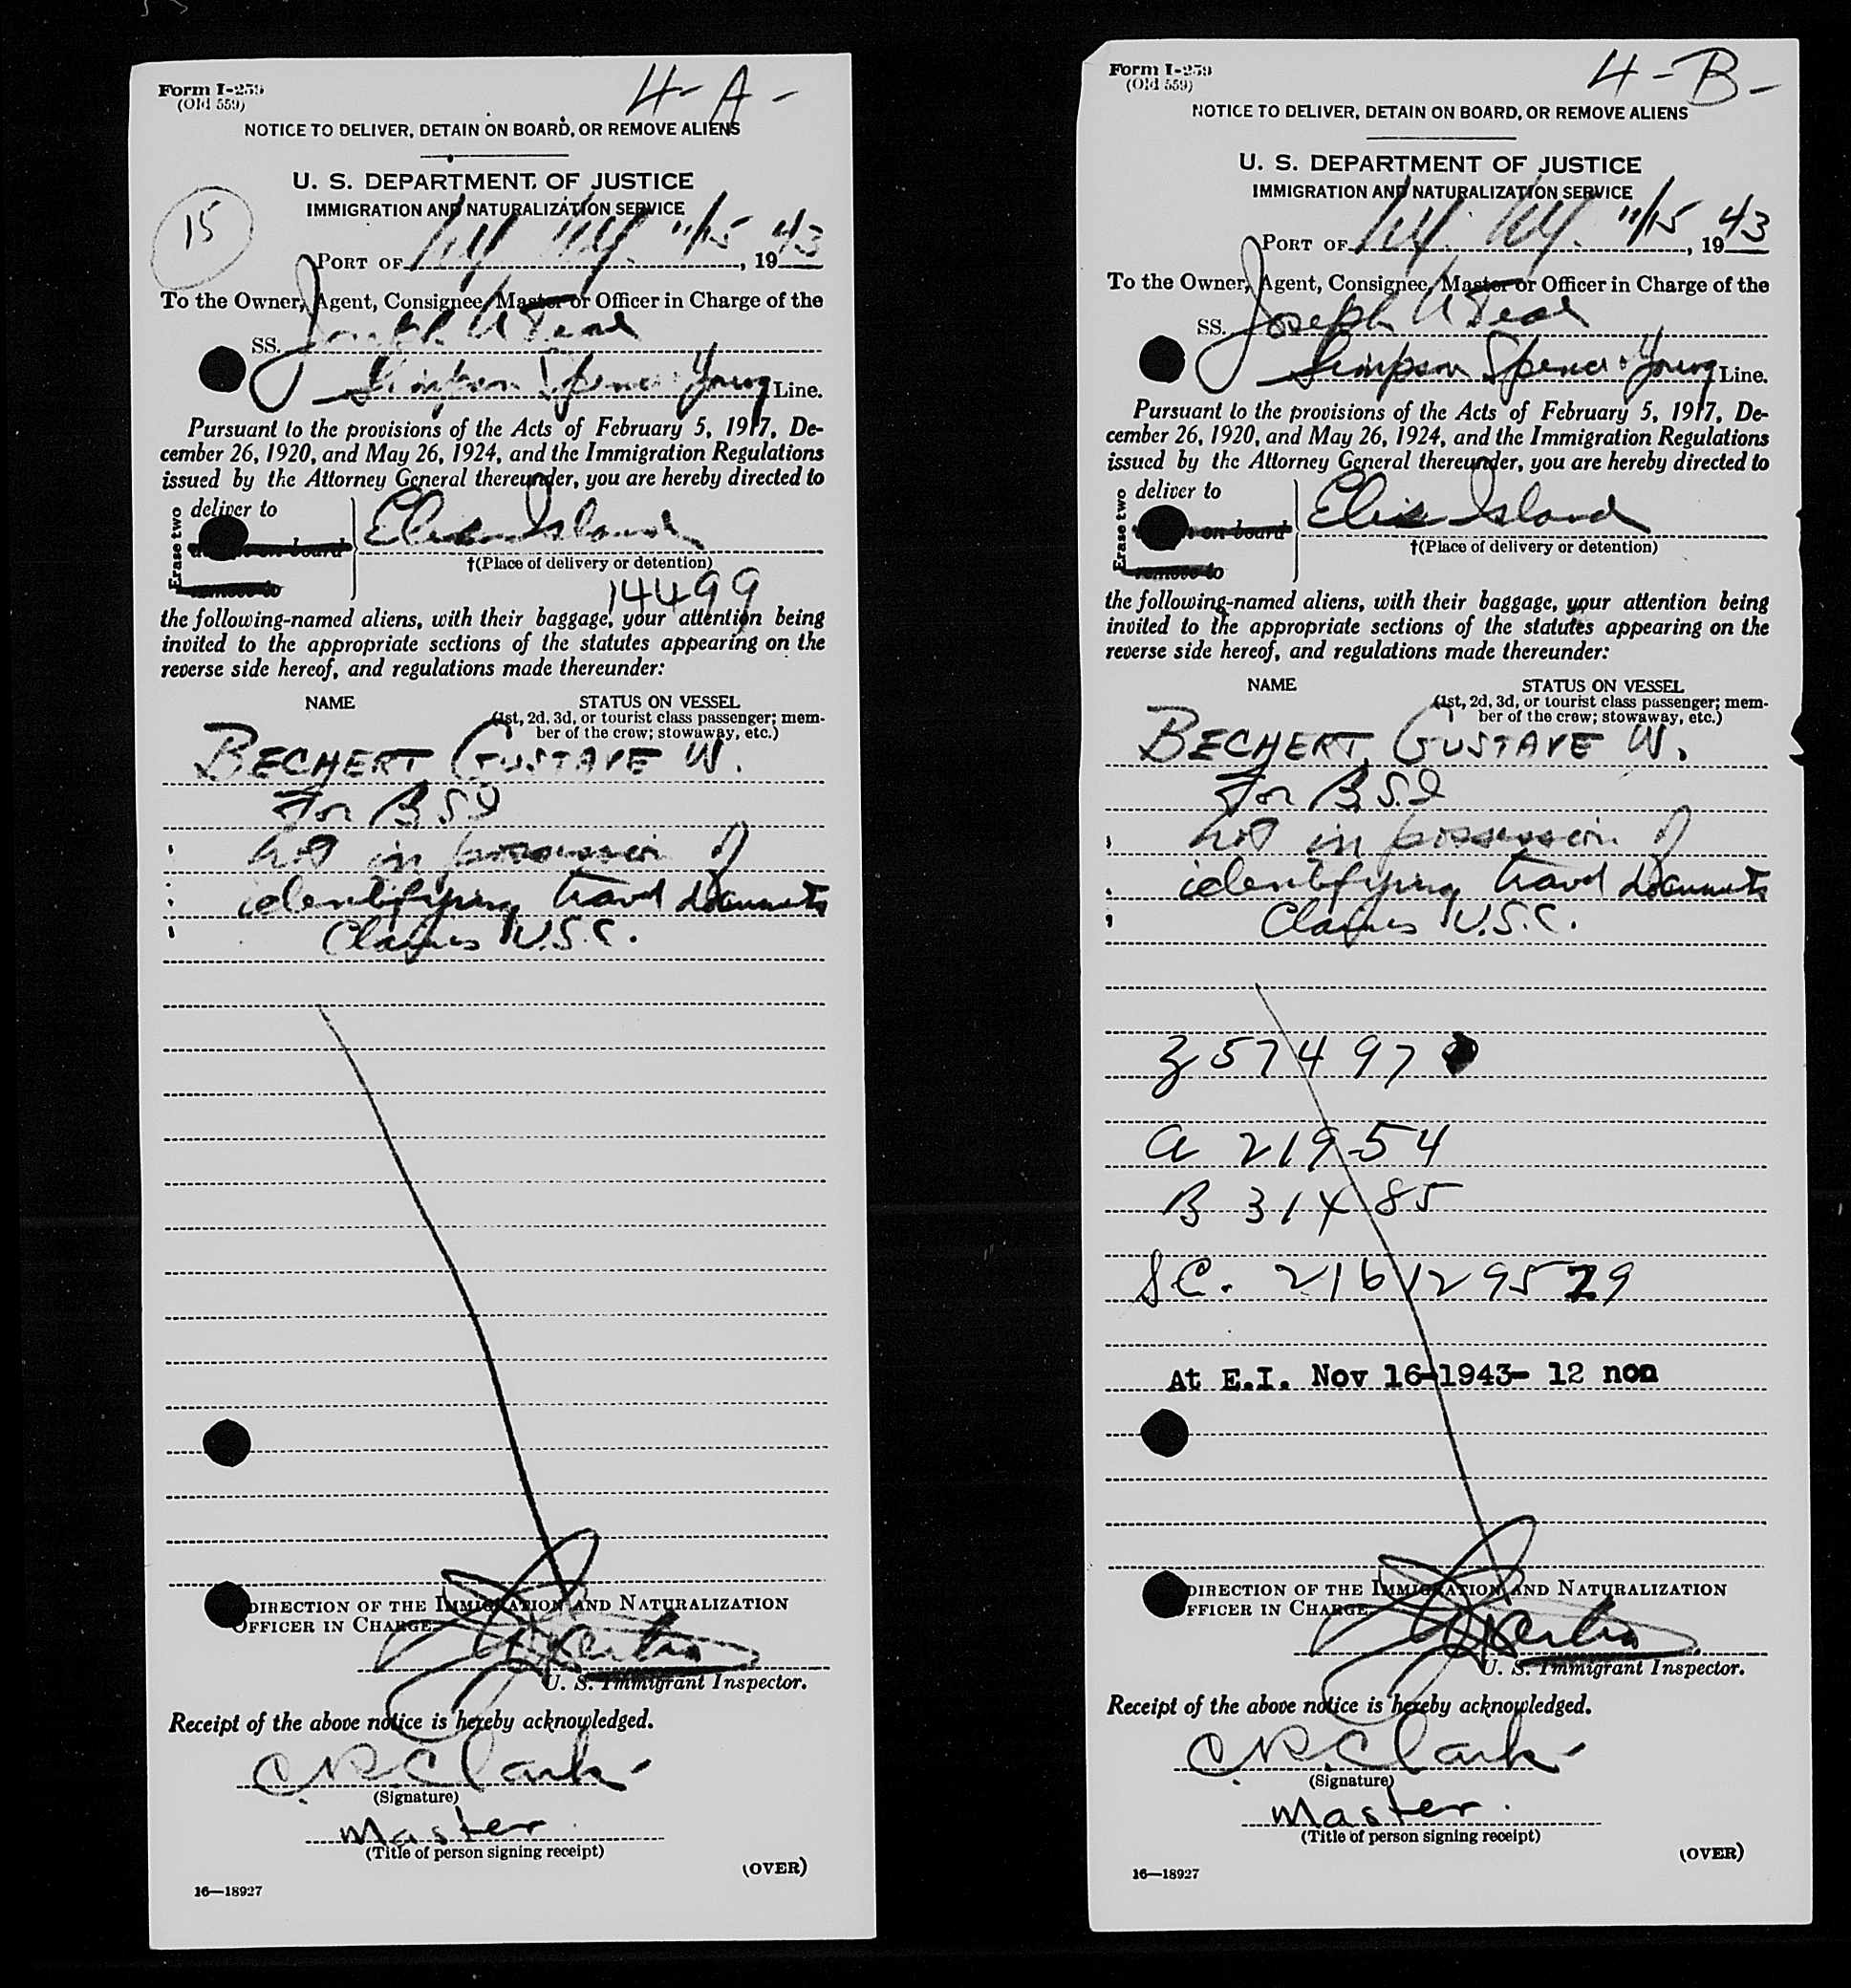 Form I-259
(Old 559)
4-A-
NOTICE TO DELIVER, DETAIN ON BOARD, OR REMOVE ALIENS
U. S. DEPARTMENT OF JUSTICE
IMMIGRATION AND NATURALIZATION SERVICE
15
PORT OF NY NY. 11/15, 1943
To the Owner, Agent, Consignee, Master or Officer in Charge of the
SS. Joseph N Teal
Simpson Spence & Young Line.
Pursuant to the provisions of the Acts of February 5, 1917, De-
cember 26, 1920, and May 26, 1924, and the Immigration Regulations
issued by the Attorney General thereunder, you are hereby directed to
Erase two
deliver to
on board
remove to
Ellis Island
†(Place of delivery or detention)
14499
the following-named aliens, with their baggage, your attention being
invited to the appropriate sections of the statutes appearing on the
reverse side hereof, and regulations made thereunder:
NAME STATUS ON VESSEL
(1st, 2d, 3d, or tourist class passenger; mem-
ber of the crew; stowaway, etc.)
BECHERT, GUSTAVE W.
For B S I
not in possession of
identifying travel documents
Claims U.S.C.
DIRECTION OF THE IMMIGRATION AND NATURALIZATION
OFFICER IN CHARGE
U. S. Immigrant Inspector.
Receipt of the above notice is hereby acknowledged.
C. R. Clark
(Signature)
Master
(Title of person signing receipt)
(OVER)
16—18927
Form I-259
(Old 559)
4-B-
NOTICE TO DELIVER, DETAIN ON BOARD, OR REMOVE ALIENS
U. S. DEPARTMENT OF JUSTICE
IMMIGRATION AND NATURALIZATION SERVICE
PORT OF NY. NY. 11/15, 1943
To the Owner, Agent, Consignee, Master or Officer in Charge of the
SS. Joseph N Teal
Simpson Spence & Young Line.
Pursuant to the provisions of the Acts of February 5, 1917, De-
cember 26, 1920, and May 26, 1924, and the Immigration Regulations
issued by the Attorney General thereunder, you are hereby directed to
Erase two
deliver to
on board
remove to
Ellis Island
†(Place of delivery or detention)
the following-named aliens, with their baggage, your attention being
invited to the appropriate sections of the statutes appearing on the
reverse side hereof, and regulations made thereunder:
NAME STATUS ON VESSEL
(1st, 2d, 3d, or tourist class passenger; mem-
ber of the crew; stowaway, etc.)
BECHERT, GUSTAVE W.
For B.S.I
not in possession of
identifying travel documents
Claims U.S.C.
Z 57497
a 21954
B 31485
S.C. 216129529
At E.I. Nov 16-1943- 12 non
DIRECTION OF THE IMMIGRATION AND NATURALIZATION
FFICER IN CHARGE
U. S. Immigrant Inspector.
Receipt of the above notice is hereby acknowledged.
C. R. Clark
(Signature)
Master.
(Title of person signing receipt)
(OVER)
16—18927